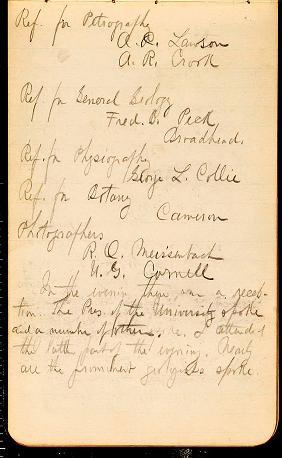 Ref. for Petrography
A. C. Lawson
A. R. Crook
Ref for General Geology
Fred. B. Peck
Broadhead.
Ref. for Physiography
George L. Collie
Ref. for Botany
Cameron
Photographers
R. Q. Meissenbach
U. G. Cornell
In the evenin there was a recep-
tion. The Pres. of the University spoke
and a number of others. I attended
the latter part of the evening. Nearly
all the prominent geologists spoke.